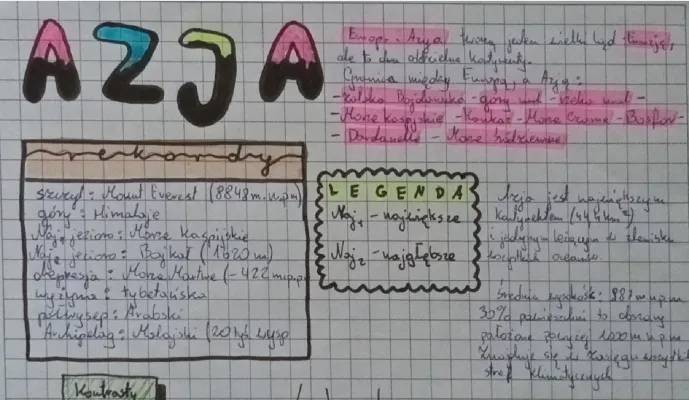 AZJA
Europa i Azja tworzą jeden wielki ląd Eurazję,
ale to dwa oddzielne kontynenty.
Granica między Europą, a Azją:
- Zatoka Bajdaracka - góry Ural - rzeka Ural -
- Morze Kaspijskie - Kaukaz - Morze Czarne - Bosfor -
- Dardanele - Morze Śródziemne
rekordy
szczyt: Mount Everest (8848 m.n.p.m)
góry: Himalaje
Naj₁ jezioro: Morze Kaspijskie
Naj₂ jezioro: Bajkał (1620 m)
depresja: Morze Martwe (-422 m.p.p.m)
wyżyna: tybetańska
półwysep: Arabski
Archipelag: Malajski (20 tyś wysp
LEGENDA
Naj₁ - największe
Naj₂ - najgłębsze
Azja jest największym
kontynentem
i jedynym leżącym w zlewisku
wszystkich oceanów.
Średnia wysokość: m n.p.m
30% powierzchni to obszary
położone powyżej 1000 m n.p.m
Znajduje się w zasięgu wszystkich
stref klimatycznych
Kontrasty